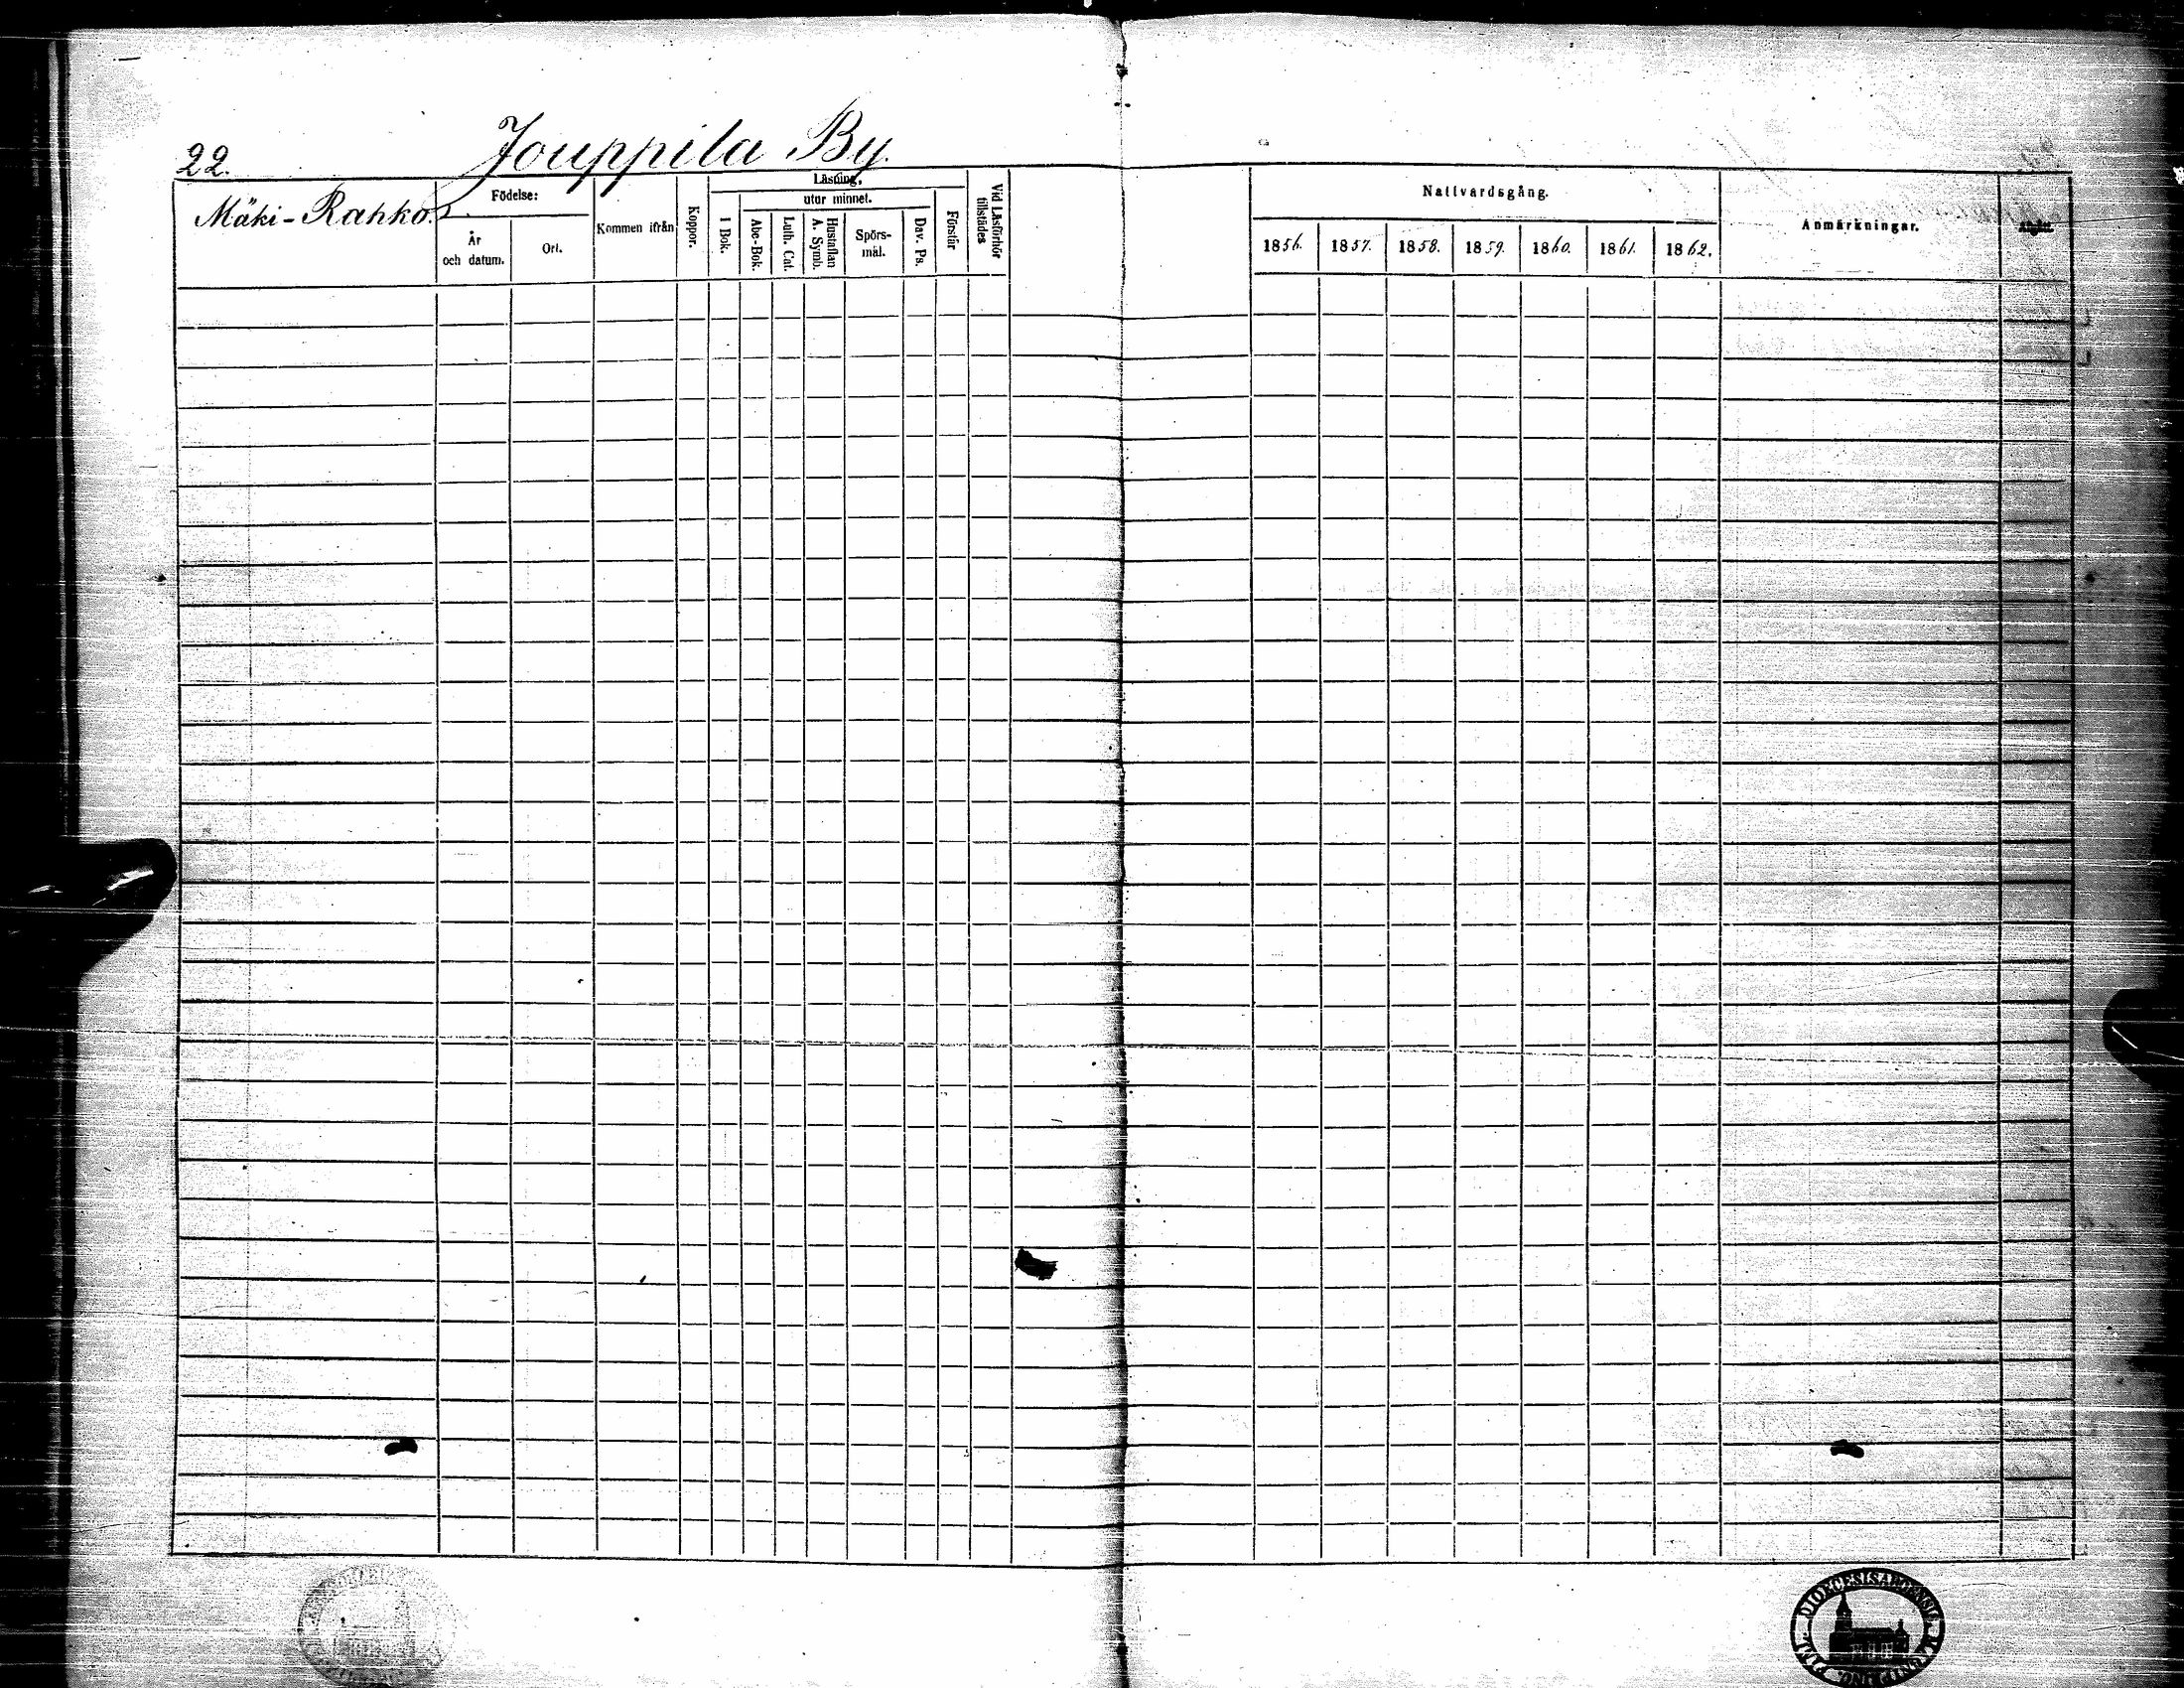 22. Jouppila By.
Mäki-Rahko.
Födelse:
År
och datum.
Ort.
Kommen ifrån
Koppor.
Läsning,
utur minnet.
I Bok.
Abc-Bok.
Luth. Cat.
Hustaflan
A. Symb.
Spörs-
mål.
Dav. Ps.
Förstår
Vid Läsförhör
tillstädes
Nattvardsgång.
1856. 1857. 1858. 1859. 1860. 1861. 1862.
Anmärkningar.
Afgått.
DIOECESIS ABOENSIS